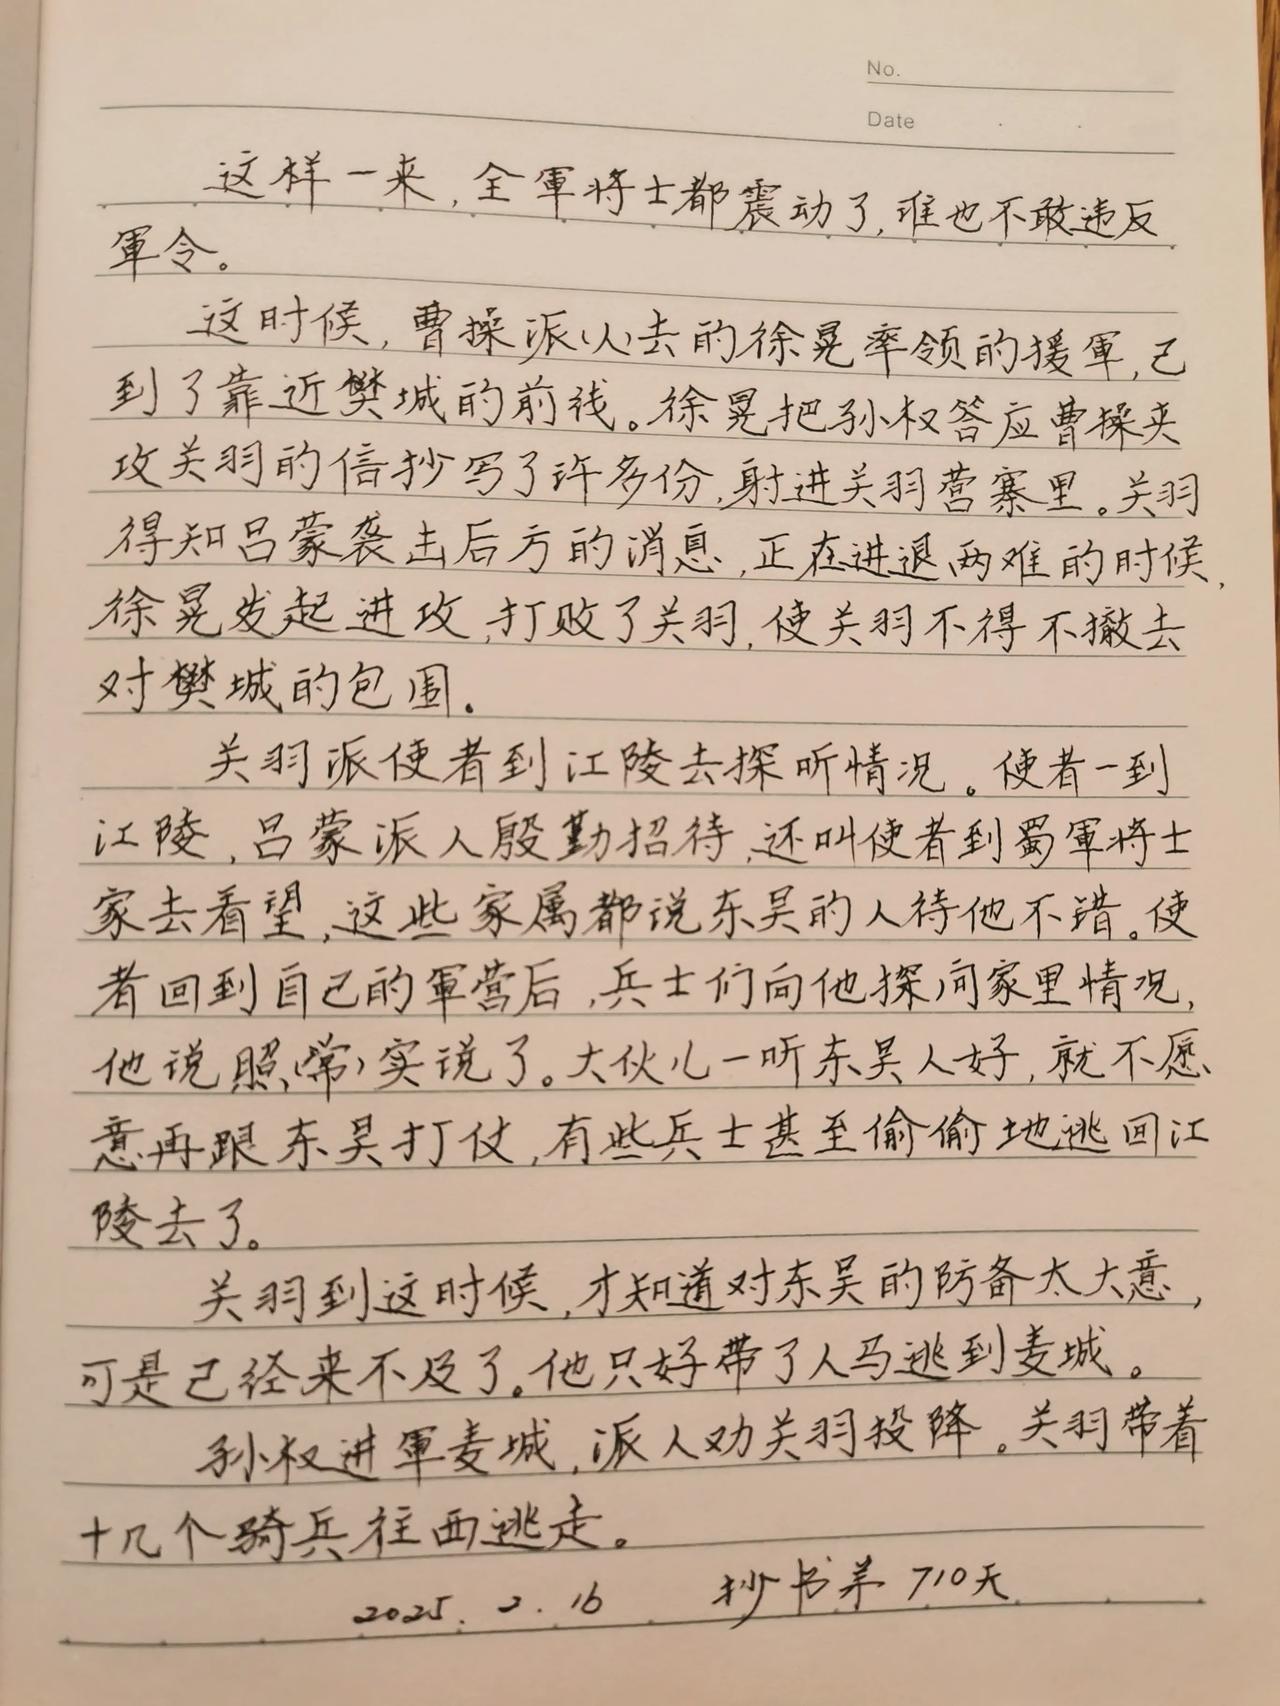 No.
Date
这样一来，全軍将士都震动了，谁也不敢违反
軍令。
这时候，曹操派(人)去的徐晃率领的援軍，已
到了靠近樊城的前线。徐晃把孙权答应曹操夹
攻关羽的信抄写了许多份，射进关羽营寨里。关羽
得知吕蒙袭击后方的消息，正在进退两难的时候，
徐晃发起进攻，打败了关羽，使关羽不得不撤去
对樊城的包围。
关羽派使者到江陵去探听情况。使者一到
江陵，吕蒙派人殷勤招待，还叫使者到蜀軍将士
家去看望，这些家属都说东吴的人待他不错。使
者回到自己的軍营后，兵士们向他探问家里情况，
他说照(常)实说了。大伙儿一听东吴人好，就不愿
意再跟东吴打仗，有些兵士甚至偷偷地逃回江
陵去了。
关羽到这时候，才知道对东吴的防备太大意，
可是已经来不及了。他只好带了人马逃到麦城。
孙权进軍麦城，派人劝关羽投降。关羽带着
十几个骑兵往西逃走。
2025.2.16 抄书第710天